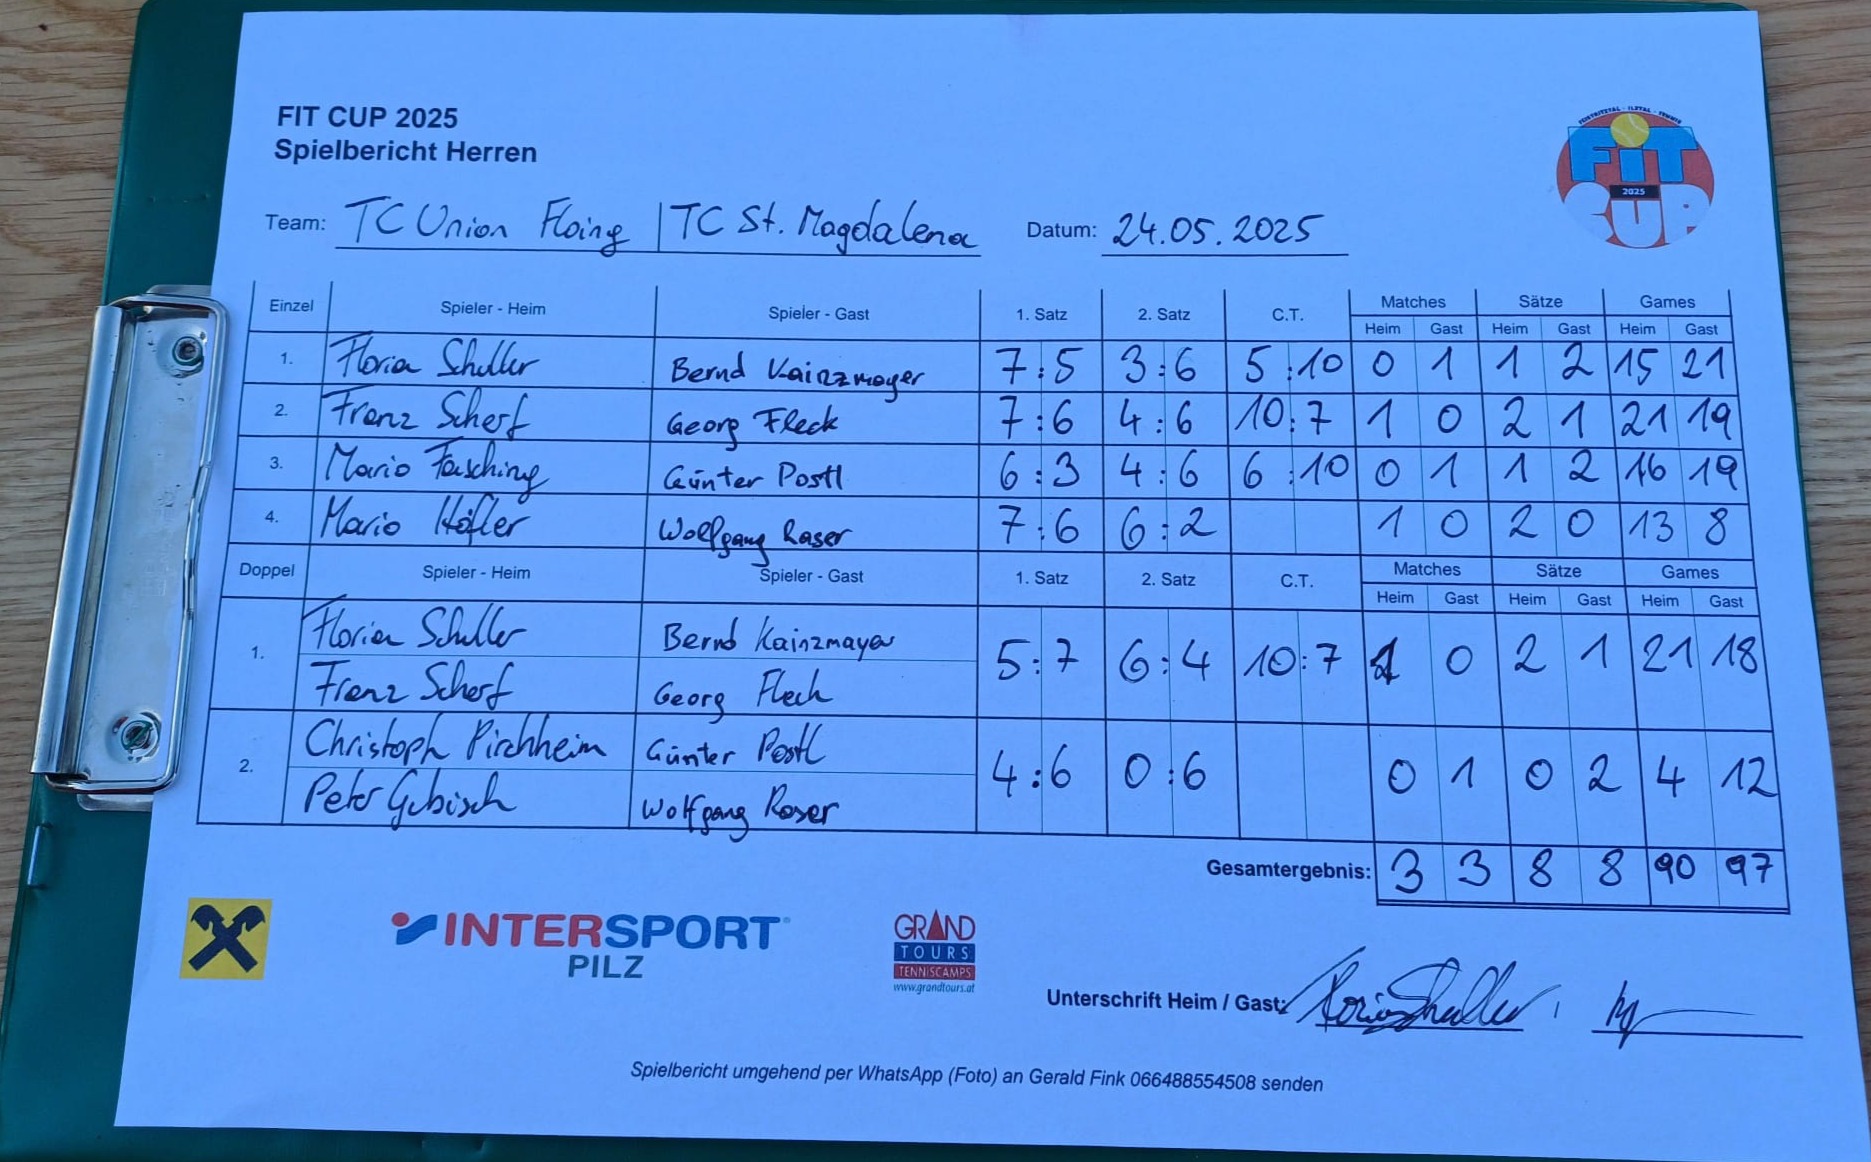 FIT CUP 2025
Spielbericht Herren
FEISTRITZTAL - ILZTAL - TENNIS
FiT
2025
CUP
Team: TC Union Floing | TC St. Magdalena Datum: 24.05.2025
Einzel Spieler - Heim Spieler - Gast 1. Satz 2. Satz C.T. Matches Sätze Games
Heim Gast Heim Gast Heim Gast
1. Florian Schuller Bernd Kainzmayer 7:5 3:6 5:10 0 1 1 2 15 21
2. Franz Scherf Georg Fleck 7:6 4:6 10:7 1 0 2 1 21 19
3. Mario Fasching Günter Postl 6:3 4:6 6:10 0 1 1 2 16 19
4. Mario Höfler Wolfgang Raser 7:6 6:2 1 0 2 0 13 8
Doppel Spieler - Heim Spieler - Gast 1. Satz 2. Satz C.T. Matches Sätze Games
Heim Gast Heim Gast Heim Gast
1. Florian Schuller Bernd Kainzmayer 5:7 6:4 10:7 1 0 2 1 21 18
Franz Scherf Georg Fleck
2. Christoph Pirchheim Günter Postl 4:6 0:6 0 1 0 2 4 12
Peter Gubisch Wolfgang Raser
Gesamtergebnis: 3 3 8 8 90 97
INTERSPORT
PILZ
GRAND
TOURS
TENNISCAMPS
www.grandtours.at
Unterschrift Heim / Gast: Florian Schuller
Spielbericht umgehend per WhatsApp (Foto) an Gerald Fink 066488554508 senden